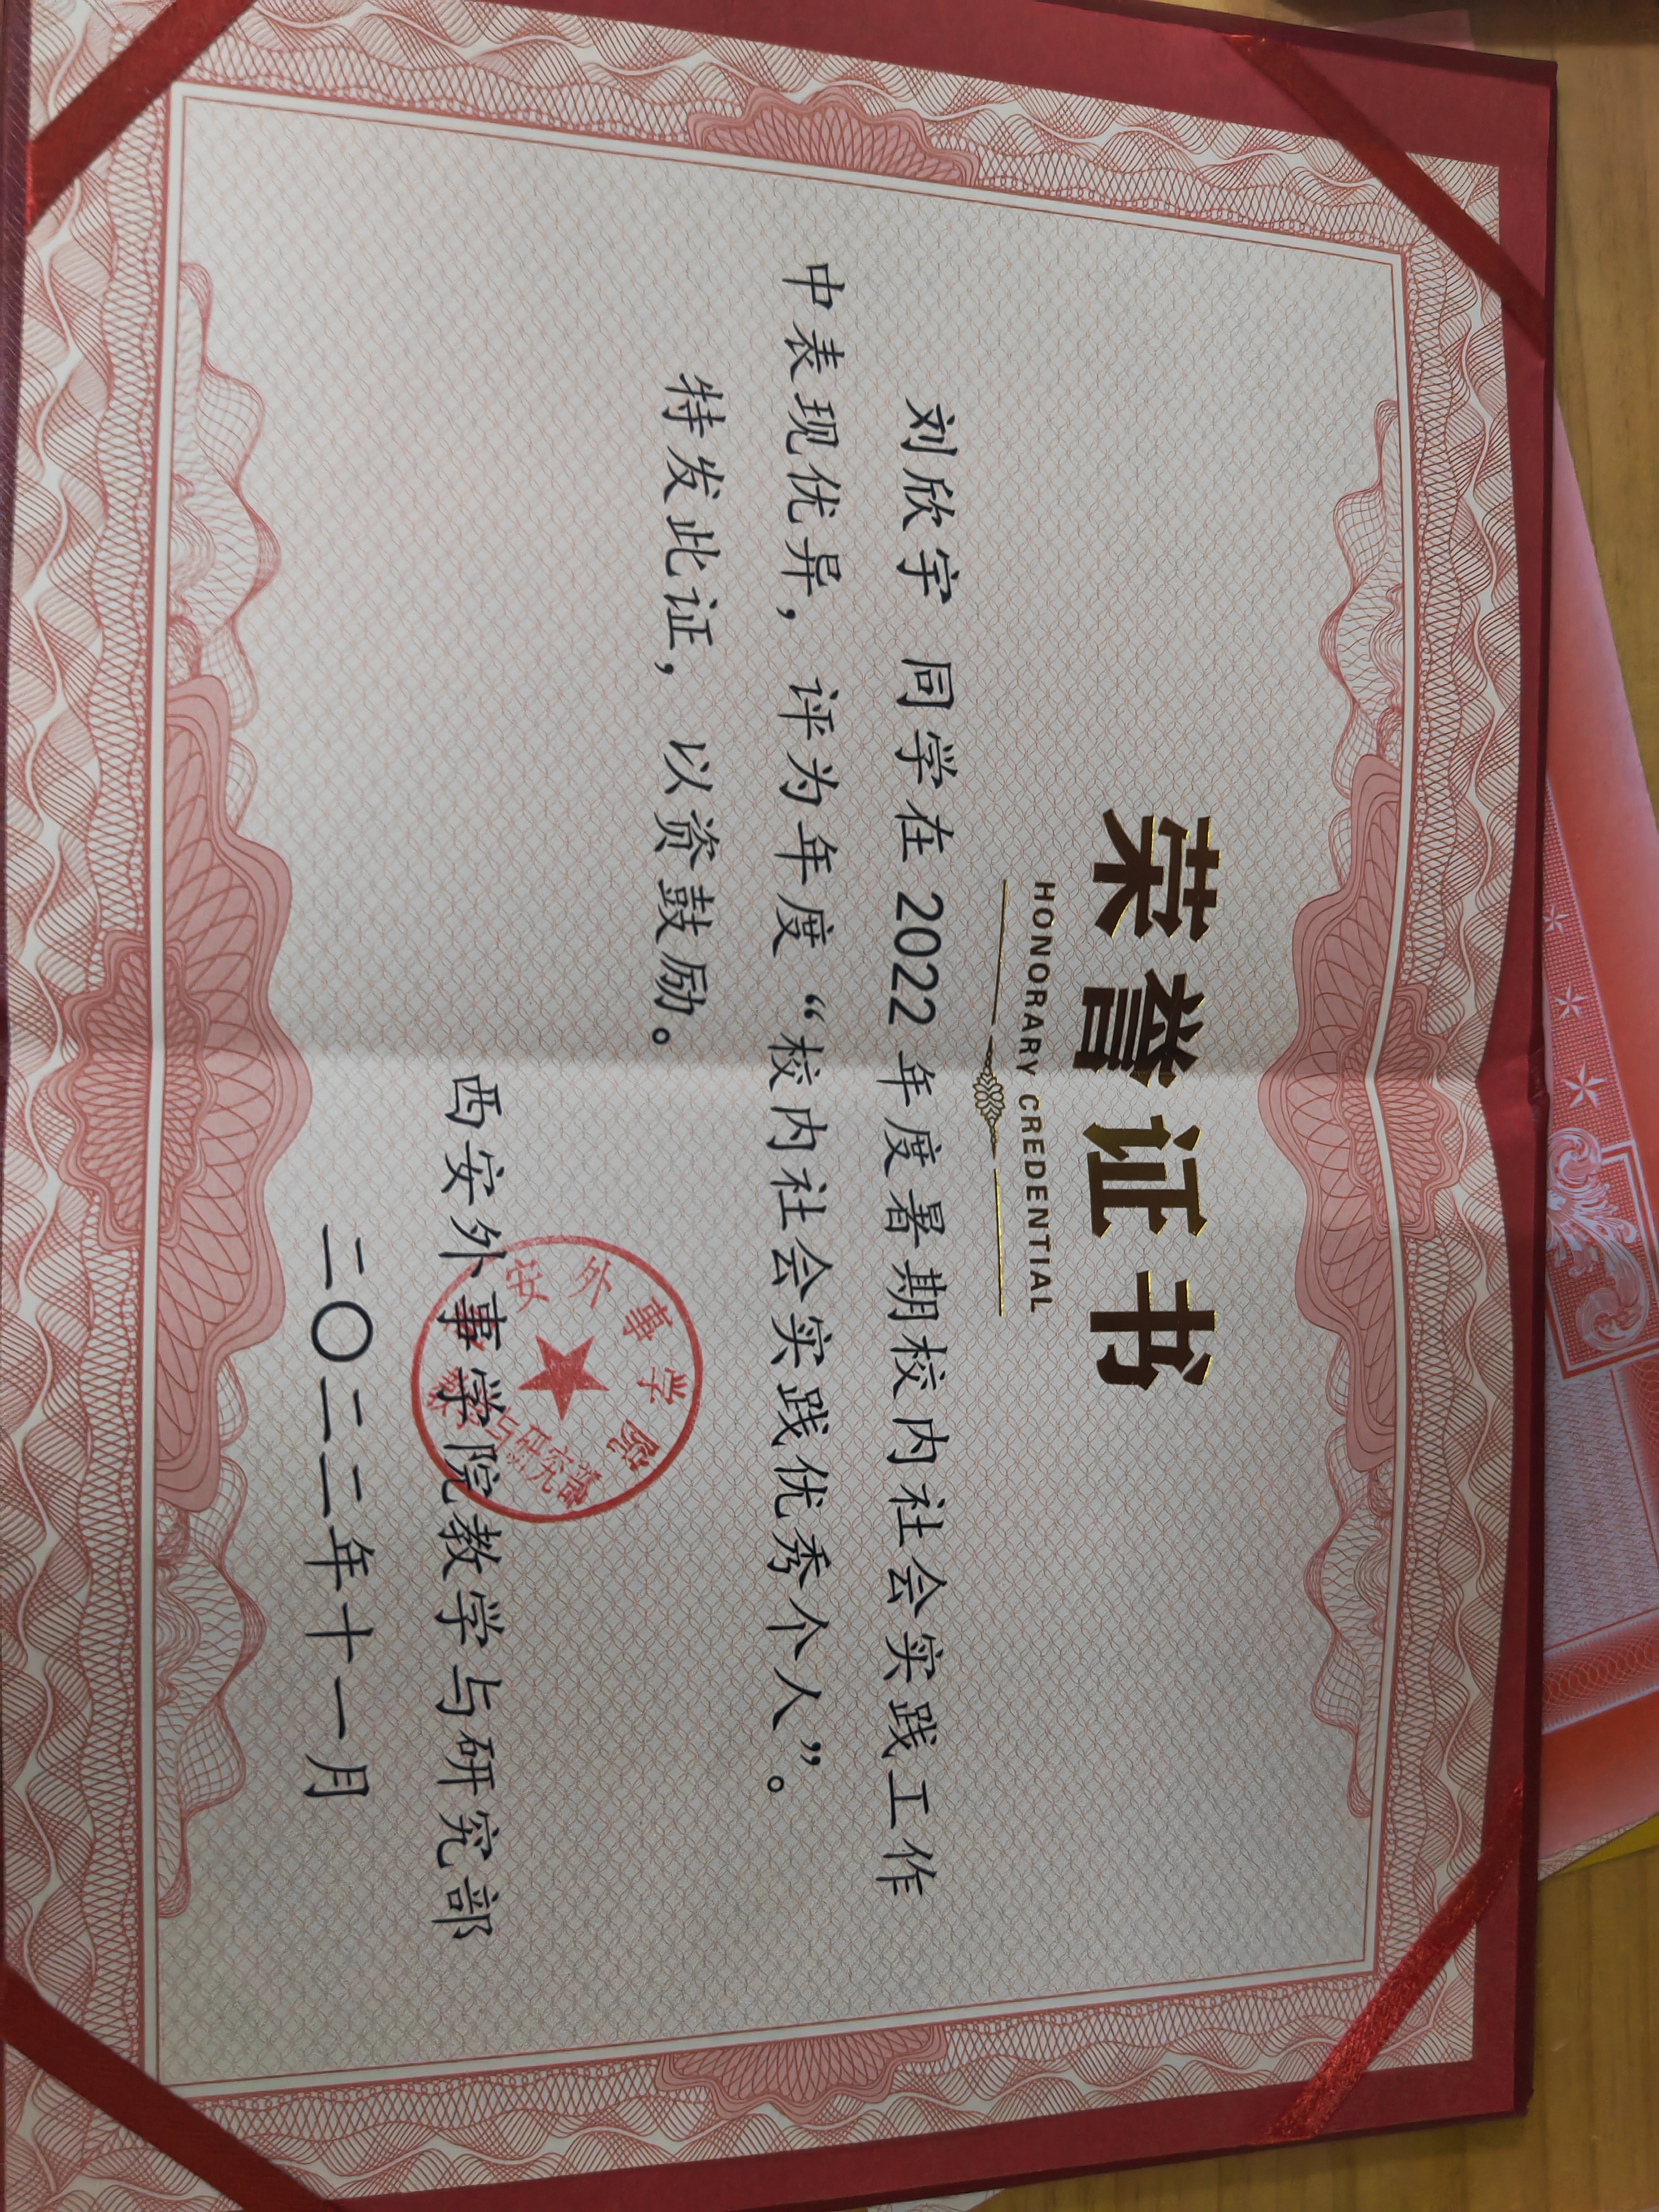 荣誉证书
HONORARY CREDENTIAL
刘欣宇 同学在 2022 年度暑期校内社会实践工作
中表现优异，评为年度“校内社会实践优秀个人”。
特发此证，以资鼓励。
西安外事学院教学与研究部
二〇二二年十一月
安外事学院
与研究部